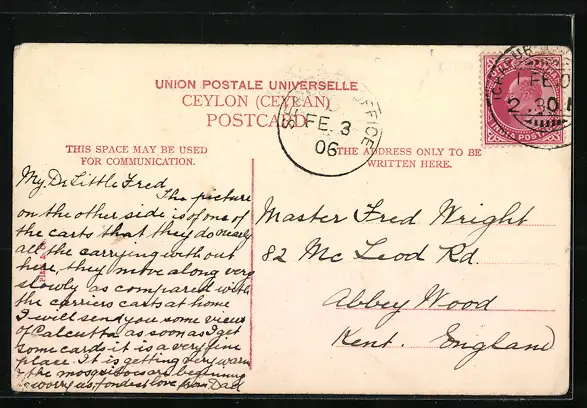 UNION POSTALE UNIVERSELLE
CEYLON (CEYLAN)
POSTCARD
THIS SPACE MAY BE USED
FOR COMMUNICATION.
THE ADDRESS ONLY TO BE
WRITTEN HERE.
FE 3
06
OFFICE
1 FE 0
2.30
INDIA POSTAGE
My Dr Little Fred
The picture
on the other side is of one of
the carts that they do nearly
all the carrying with out
here, they move along very
slowly as compared with
the carriers carts at home
I will send you some views
of Calcutta as soon as I get
some cards it is a very fine
place. It is getting very warm
& the mosquitoes are beginning
to worry us, fondest love from Dad
Master Fred Wright
82 Mc Leod Rd.
Abbey Wood
Kent. England